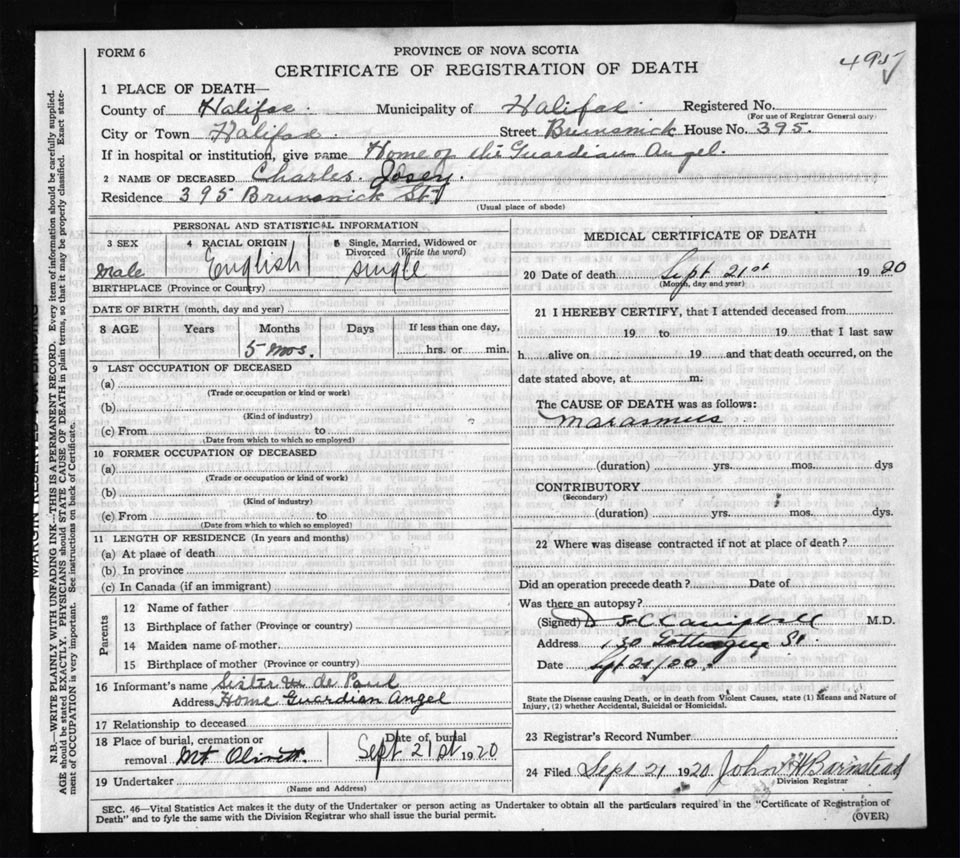 FORM 6
PROVINCE OF NOVA SCOTIA
CERTIFICATE OF REGISTRATION OF DEATH
1 PLACE OF DEATH—
County of Halifax. Municipality of Halifax. Registered No.
(For use of Registrar General only)
City or Town Halifax. Street Brunswick House No. 395.
If in hospital or institution, give name Home of the Guardian Angel.
2 NAME OF DECEASED Charles.
Residence 395 Brunswick St.
(Usual place of abode)
PERSONAL AND STATISTICAL INFORMATION
3 SEX 4 RACIAL ORIGIN 5 Single, Married, Widowed or Divorced (Write the word)
Male English single
BIRTHPLACE (Province or Country)
DATE OF BIRTH (month, day and year)
8 AGE Years Months Days If less than one day,
5 mos. hrs. or min.
9 LAST OCCUPATION OF DECEASED
(a)
(Trade or occupation or kind or work)
(b)
(Kind of industry)
(c) From to
(Date from which to which so employed)
10 FORMER OCCUPATION OF DECEASED
(a)
(Trade or occupation or kind of work)
(b)
(Kind of industry)
(c) From to
(Date from which to which so employed)
11 LENGTH OF RESIDENCE (In years and months)
(a) At place of death
(b) In province
(c) In Canada (if an immigrant)
Parents
12 Name of father
13 Birthplace of father (Province or country)
14 Maiden name of mother
15 Birthplace of mother (Province or country)
16 Informant's name Sister M de Paul
Address Home Guardian Angel
17 Relationship to deceased
18 Place of burial, cremation or removal Mt Olivett. Date of burial Sept 21st 1920
19 Undertaker
(Name and Address)
MEDICAL CERTIFICATE OF DEATH
20 Date of death Sept 21st 1920
(Month, day and year)
21 I HEREBY CERTIFY, that I attended deceased from
19 to 19 that I last saw
h alive on 19 and that death occurred, on the
date stated above, at m:
The CAUSE OF DEATH was as follows:
Marasmus
(duration) yrs. mos. dys
CONTRIBUTORY
(Secondary)
(duration) yrs. mos. dys.
22 Where was disease contracted if not at place of death?
Did an operation precede death? Date of
Was there an autopsy?
(Signed) Campbell M.D.
Address 130 Gottingen St.
Date Sept 21/20.
State the Disease causing Death, or in death from Violent Causes, state (1) Means and Nature of
Injury, (2) whether Accidental, Suicidal or Homicidal.
23 Registrar's Record Number
24 Filed Sept 21 1920 John H Barnstead
Division Registrar
SEC. 46—Vital Statistics Act makes it the duty of the Undertaker or person acting as Undertaker to obtain all the particulars required in the "Certificate of Registration of
Death" and to fyle the same with the Division Registrar who shall issue the burial permit.
(OVER)
MARGIN RESERVED FOR BINDING
N.B.—WRITE PLAINLY WITH UNFADING INK—THIS IS A PERMANENT RECORD. Every item of information should be carefully supplied.
AGE should be stated EXACTLY. PHYSICIANS should STATE CAUSE OF DEATH in plain terms, so that it may be properly classified. Exact statement of OCCUPATION is very important. See instructions on back of Certificate.